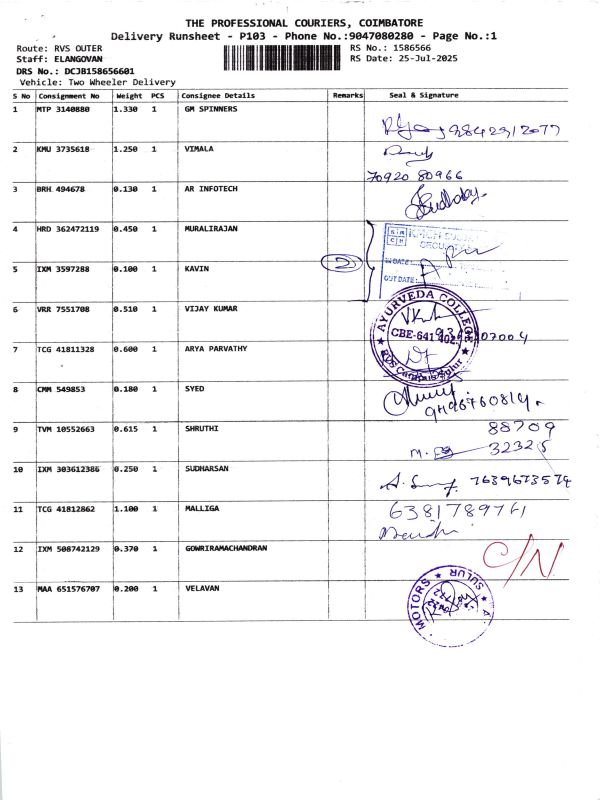 THE PROFESSIONAL COURIERS, COIMBATORE
Delivery Runsheet - P103 - Phone No.:9047080280 - Page No.:1
Route: RVS OUTER RS No.: 1586566
Staff: ELANGOVAN RS Date: 25-Jul-2025
DRS No.: DCJB158656601
Vehicle: Two Wheeler Delivery
S No Consignment No Weight PCS Consignee Details Remarks Seal & Signature
1 MTP 3140880 1.330 1 GM SPINNERS
9842912077
2 KMU 3735618 1.250 1 VIMALA
70920 80966
3 BRH 494678 0.130 1 AR INFOTECH
4 HRD 362472119 0.450 1 MURALIRAJAN
2
IN DATE:
5 IXM 3597288 0.100 1 KAVIN
OUT DATE:
6 VRR 7551708 0.510 1 VIJAY KUMAR
AYURVEDA COLLEGE
CBE-641 402
7 TCG 41811328 0.600 1 ARYA PARVATHY
8 CMM 549853 0.180 1 SYED
9 TVM 10552663 0.615 1 SHRUTHI 88709
32325
10 IXM 303612386 0.250 1 SUDHARSAN
7639673574
11 TCG 41812862 1.100 1 MALLIGA 6381789761
12 IXM 508742129 0.370 1 GOWRIRAMACHANDRAN C/N
13 MAA 651576707 0.200 1 VELAVAN
MOTORS ★ SULUR ★